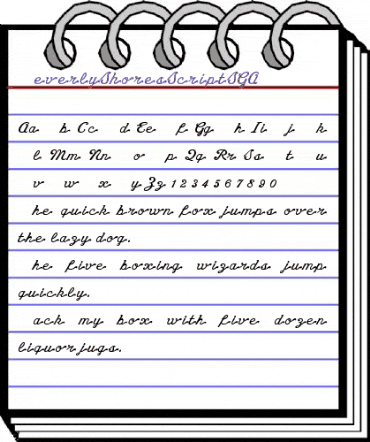 everlyShoresScriptSGA
Aa b Cc d Ee f Gg h Ii j k
l Mm Nn o p Qq Rr Ss t u
v w x y Zz 1 2 3 4 5 6 7 8 9 0
he quick brown fox jumps over
the lazy dog.
he five boxing wizards jump
quickly.
ack my box with five dozen
liquor jugs.